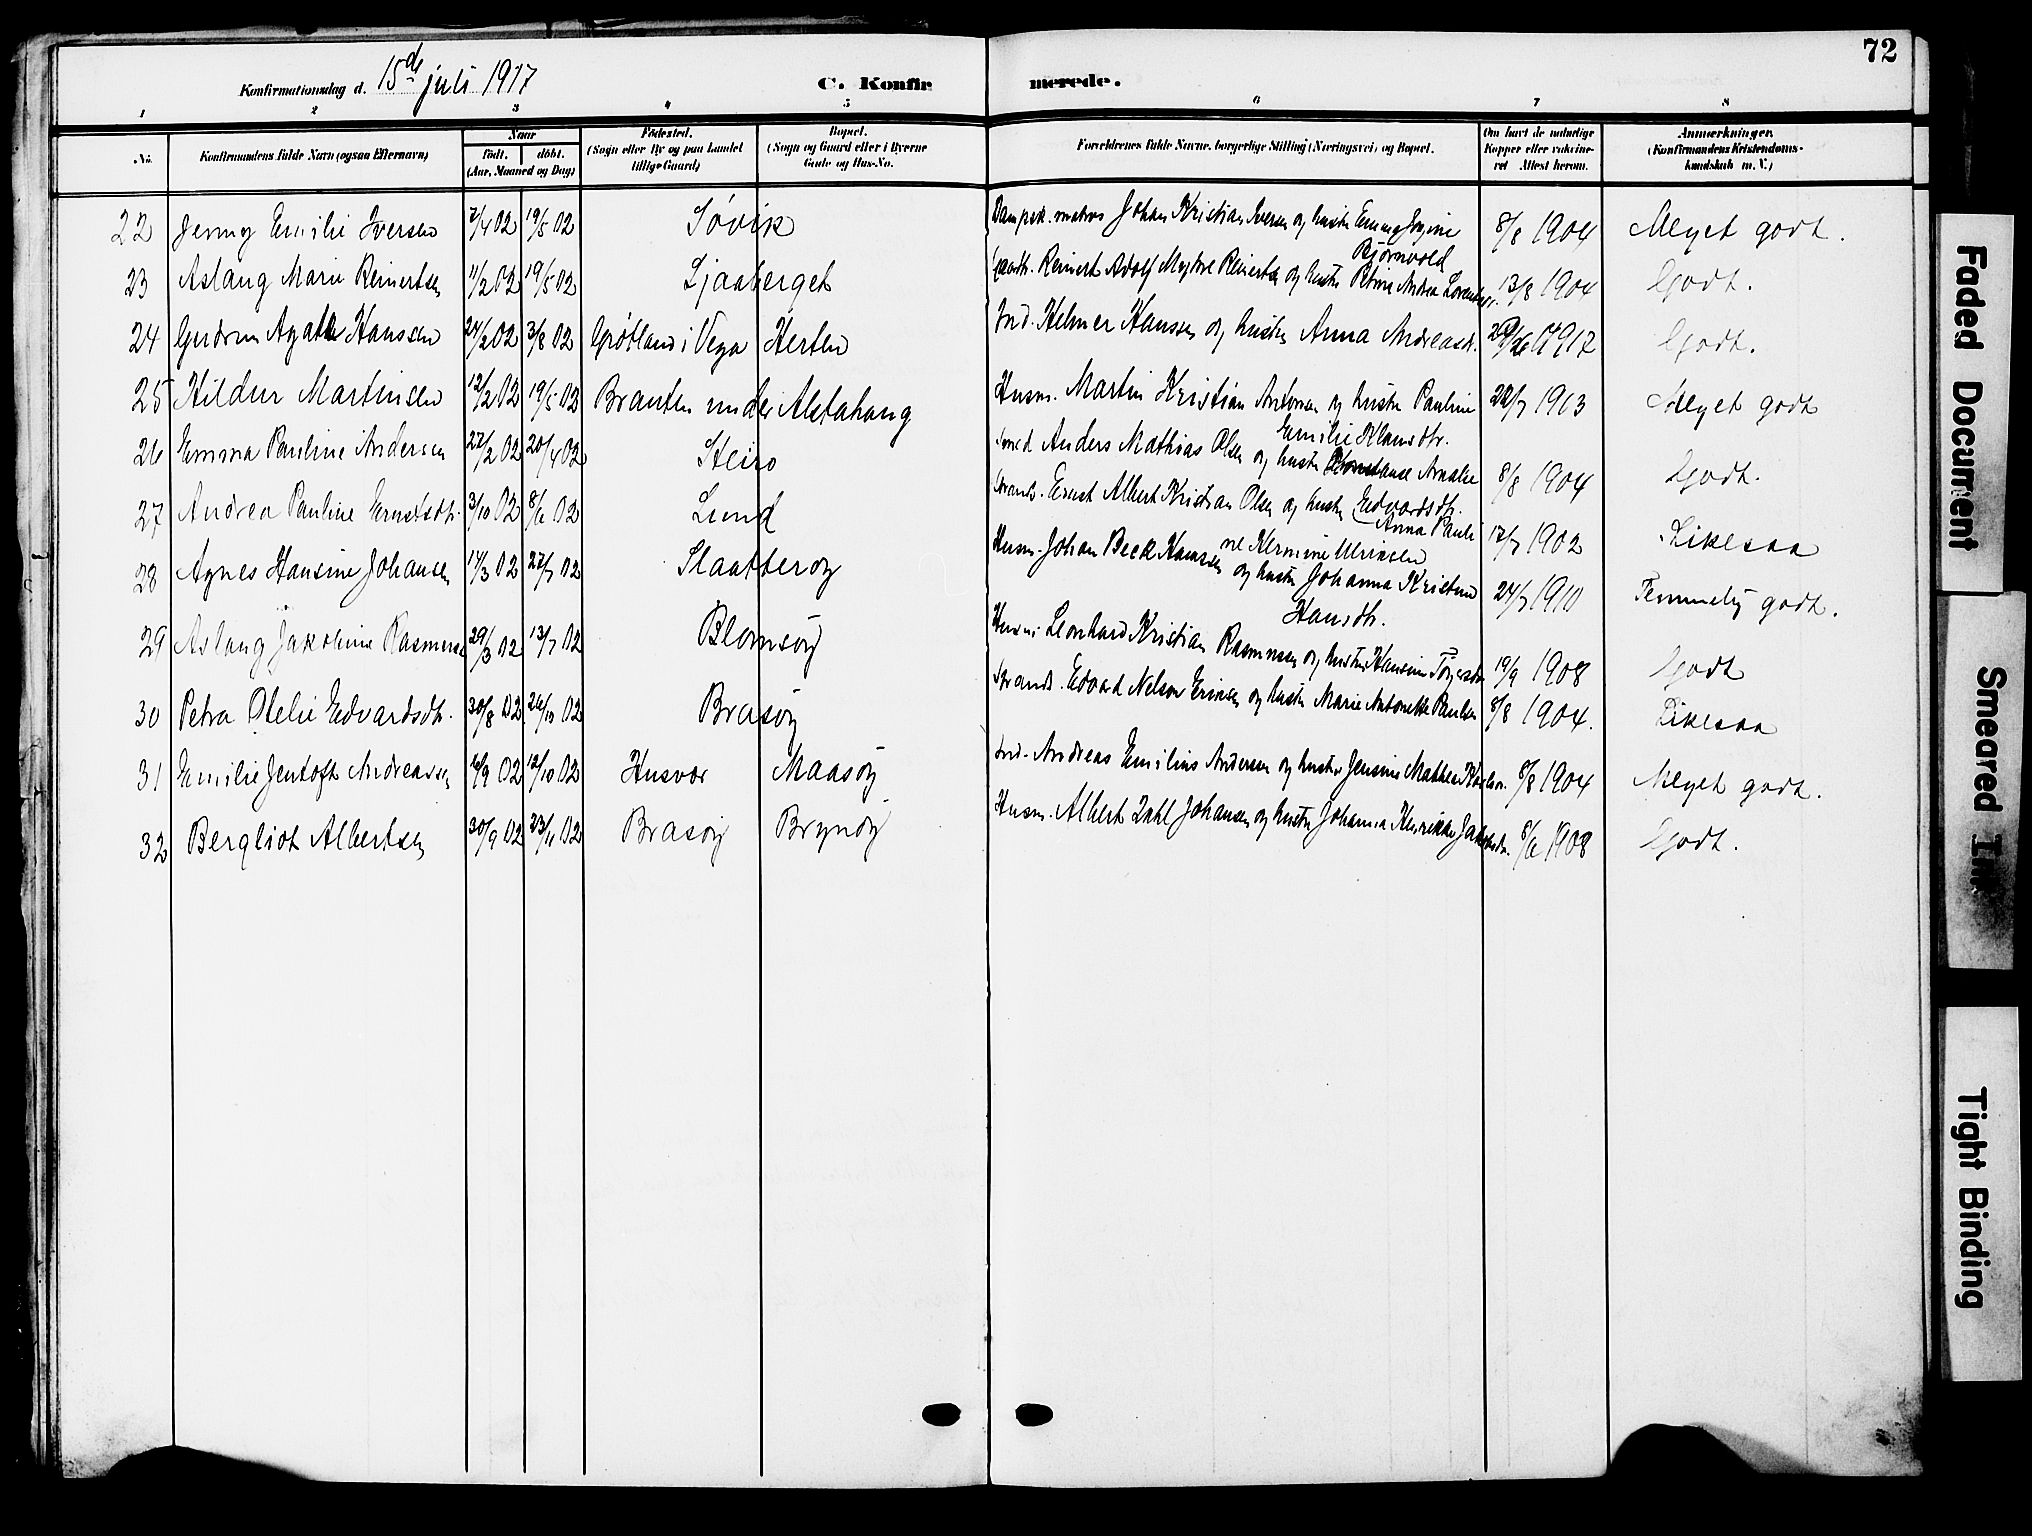 72
Konfirmationsdag d. 15de juli 1917 C. Konfirmerede.
1 2 3 4 5 6 7 8
No. Konfirmandens fulde Navn (ogsaa Efternavn) Naar født. døbt. (Aar, Maaned og Dag) Fødested. (Sogn eller By og paa Landet tillige Gaard) Bopæl. (Sogn og Gaard eller i Byerne Gade og Hus-No. Forældrenes fulde Navne, borgerlige Stilling (Næringsvei) og Bopæl. Om havt de naturlige Kopper eller vaccineret Attest herom. Anmærkninger. (Konfirmandens Kristendomskundskab m. V.)
22 Jenny Emilie Iversen 7/4 02 19/5 02 Søvik Dampsk. matros Johan Kristian Iversen og hustru Emma Jørgine Bjørnvold 8/8 1904 Meget godt.
23 Aslaug Marie Reinertsen 11/2 02 19/5 02 Ljaaberget Reinert Adolf Myhre Reinertsen og hustru Petrine Andrea 13/8 1904 Godt.
24 Gudrun Agathe Hanssen 24/2 02 3/8 02 Grøtland i Vega Herten Ind. Helmer Hanssen og hustru Anna Andreasd. 1917 Godt.
25 Hildur Martinsen 12/2 02 19/5 02 Brauten under Alstahaug Husm. Martin Kristian Antonsen og hustru Pauline Emilie Klausdtr. 22/7 1903 Meget godt
26 Emma Pauline Andersen 27/2 02 20/4 02 Steiro Smed Anders Mathias Olsen og hustru Konstanse Amalie Edvardsdtr. 8/8 1904 Godt.
27 Andrea Pauline Ernstsdtr. 3/10 02 8/6 02 Lund Strands. Ernst Albert Kristian Olsen og hustru Anna Pauline Hermine Ulriksen 17/7 1902 Likesaa
28 Agnes Hansine Johansen 14/3 02 27/7 02 Slaatterøy Husm. Johan Beck Hanssen og hustru Johanna Kristine Hansdtr. 24/7 1910 Temmelig godt.
29 Aslaug Jakobine Rasmussen 29/3 02 13/7 02 Blomsøy Husm. Leonhard Kristian Rasmussen og hustru Hansine 19/9 1908 Godt
30 Petra Otelie Edvardsdtr. 30/8 02 26/10 02 Brasøy Strands. Edvard Nelson Eriksen og hustru Marie Antonette Paulsen 8/8 1904. Likesaa
31 Emilie Jentoft Andreassen 6/9 02 12/10 02 Husvær Maasøy Ind. Andreas Emilius Andersen og hustru Jensine Mathea 8/8 1904 Meget godt.
32 Bergliot Albertsen 30/9 02 23/11 02 Brasøy Brynøy Husm. Albert Zahl Johansen og hustru Johanna Henrikke 8/6 1908 Godt.
Faded Document
Smeared Ink
Tight Binding